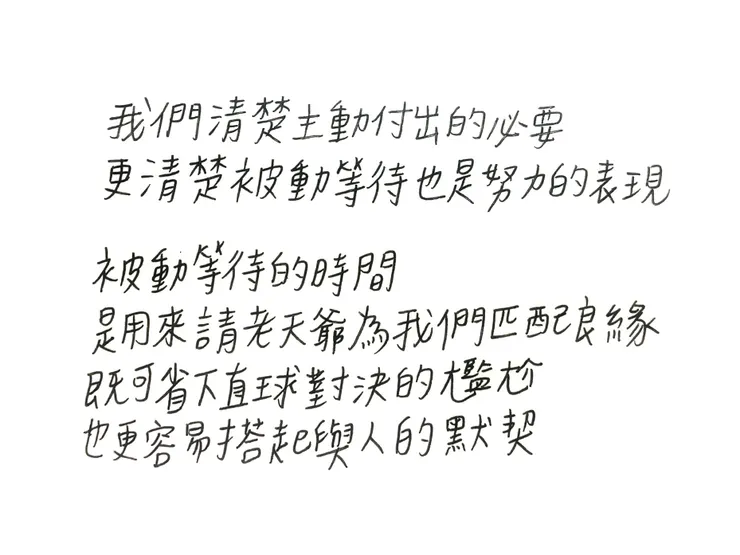 我們清楚主動付出的必要
更清楚被動等待也是努力的表現
被動等待的時間
是用來請老天爺為我們匹配良緣
既可省下直球對決的尷尬
也更容易搭起與人的默契